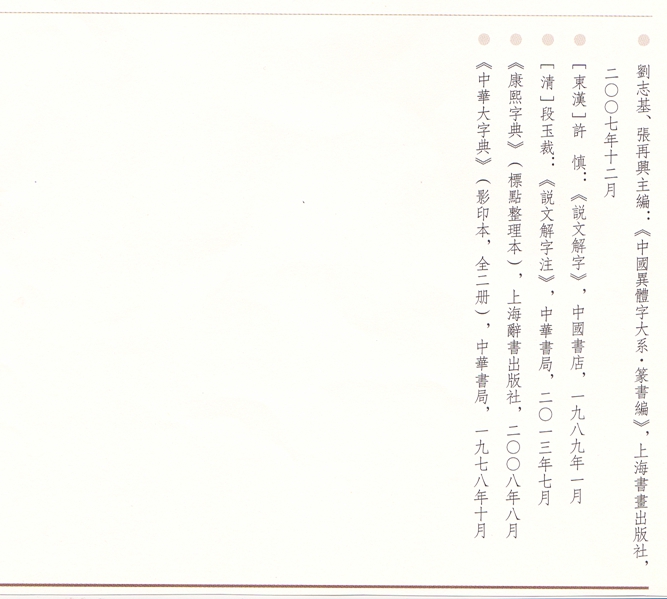 劉志基、張再興主編：《中國異體字大系·篆書編》，上海書畫出版社，
二〇〇七年十二月
[東漢]許　慎：《說文解字》，中國書店，一九八九年一月
[清]段玉裁：《說文解字注》，中華書局，二〇一三年七月
《康熙字典》（標點整理本），上海辭書出版社，二〇〇八年八月
《中華大字典》（影印本，全二册），中華書局，一九七八年十月